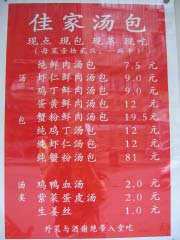 佳家汤包
现点 现包 现蒸 现吃
(每笼壹拾贰只,一两半)
纯鲜肉汤包 7.5 元
汤 虾仁鲜肉汤包 9.0 元
鸡丁鲜肉汤包 9.0 元
蛋黄鲜肉汤包 12 元
包 蟹粉鲜肉汤包 19.5 元
纯鸡丁汤包 12 元
纯虾仁汤包 12 元
纯蟹粉汤包 81 元
汤 鸡鸭血汤 2.0 元
类 紫菜蛋皮汤 2.0 元
生姜丝 1.0 元
外菜与酒谢绝带入堂吃